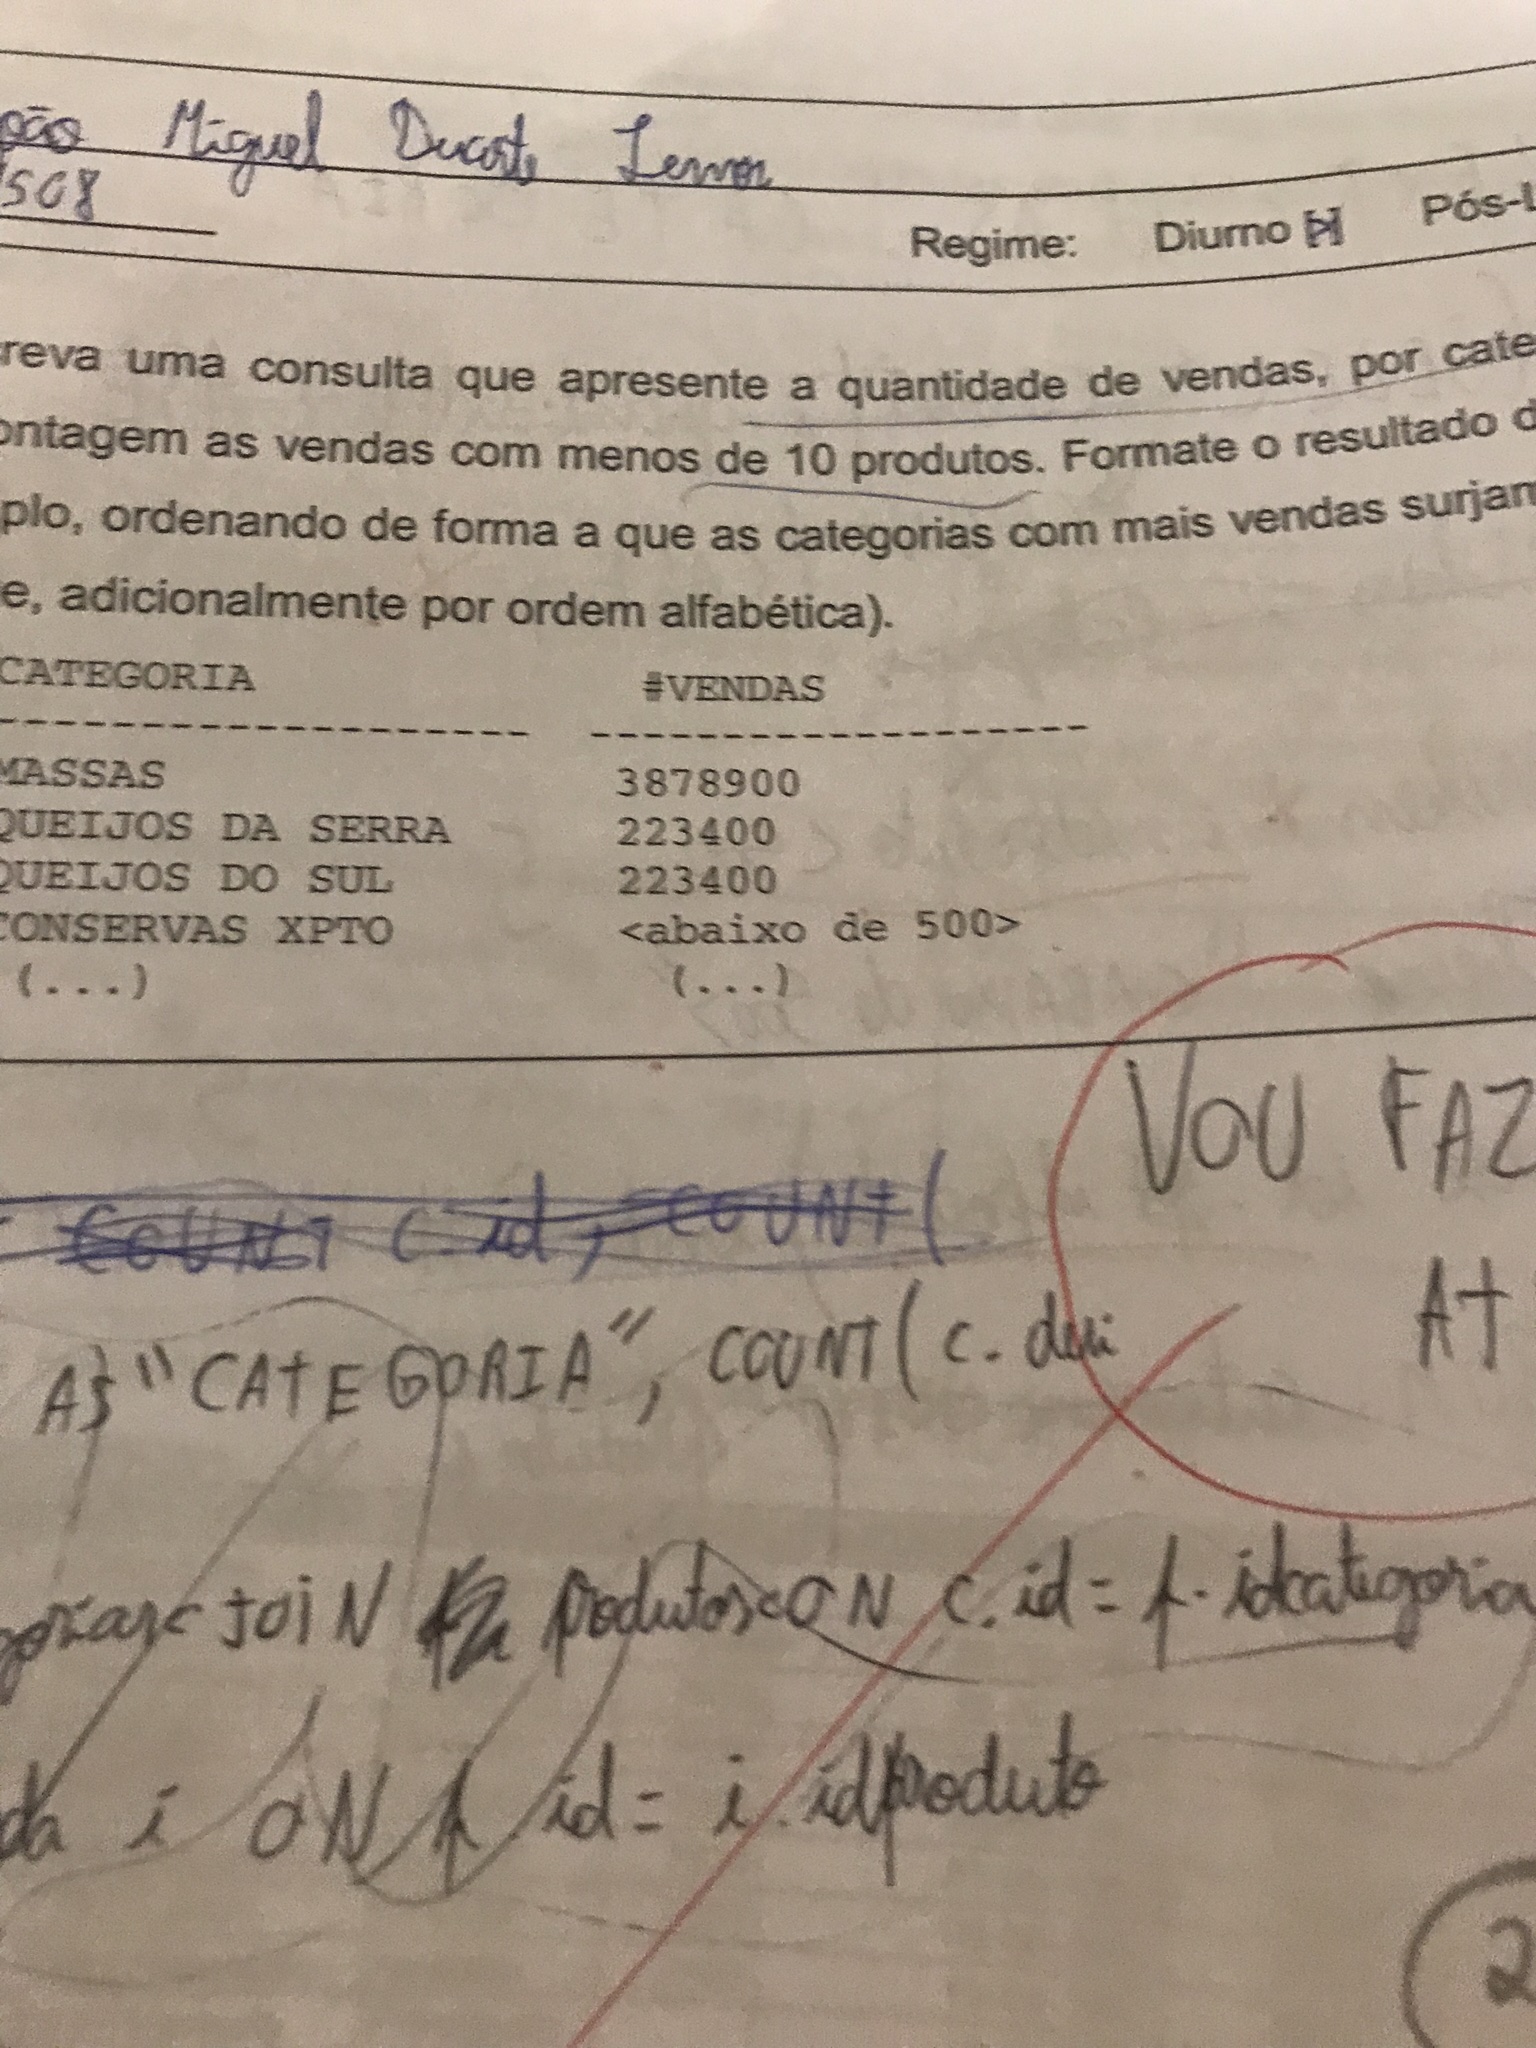 Miguel Duarte Lemos
508
Regime: Diurno Pós-L
reva uma consulta que apresente a quantidade de vendas, por cate
ontagem as vendas com menos de 10 produtos. Formate o resultado d
plo, ordenando de forma a que as categorias com mais vendas surjam
e, adicionalmente por ordem alfabética).
CATEGORIA #VENDAS
-------------------- --------------------
MASSAS 3878900
QUEIJOS DA SERRA 223400
QUEIJOS DO SUL 223400
CONSERVAS XPTO <abaixo de 500>
(...) (...)
VOU FAZ
COUNT c.id, COUNT(
AT
AS "CATEGORIA", COUNT( c.
JOIN produtos ON c.id = p.idcategoria
da i ON p.id = i.idproduto
2